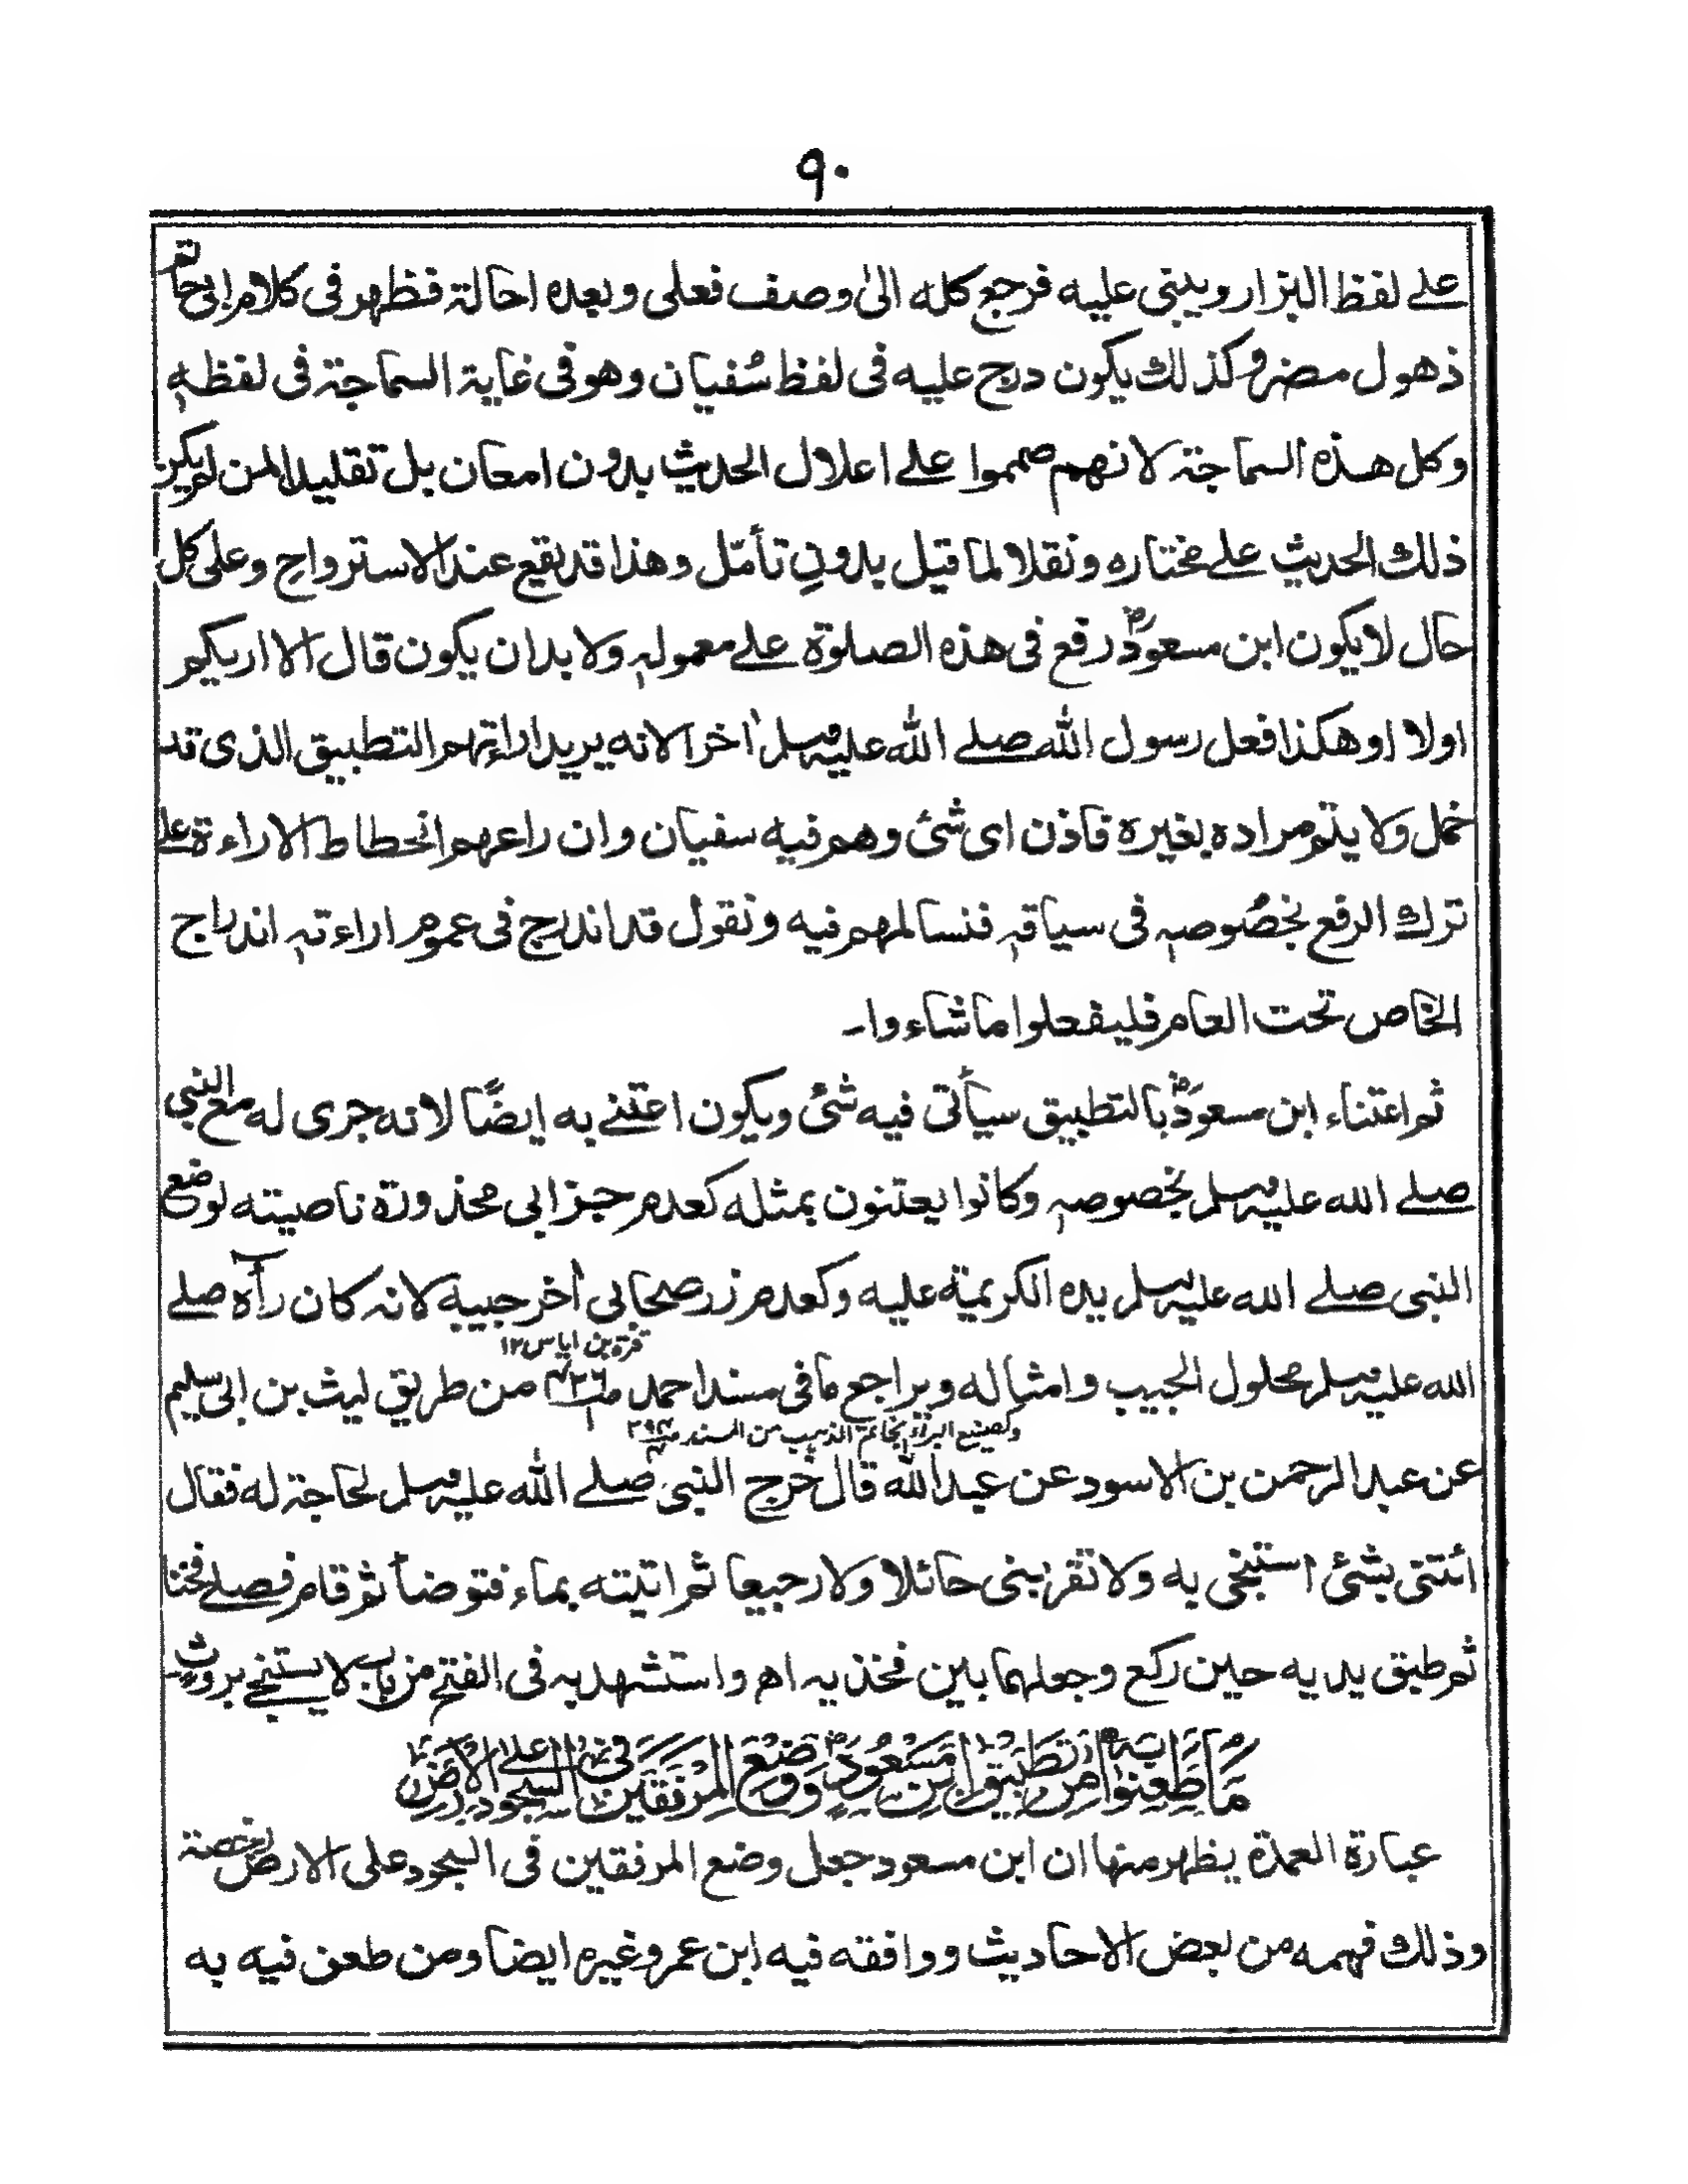 ٩٠
علے لفظ البزار ويبتنى عليه فرجع كله الىٰ وصف فعلى وبعده احالة فظهر فى كلام ابى حاتم
ذهول مضر وكذلك يكون درج عليه فى لفظ سُفيان وهو فى غاية السماجة فى لفظهٖ
وكل هذه السماجة لانهم صمموا علے اعلال الحديث بدون امعان بل تقليدا لمن لم يكن
ذلك الحديث علے مختاره ونقلا لما قيل بدونِ تأمّل وهذا قد يقع عند الاسترواح وعلى كل
حال لا يكون ابن مسعودؓ رفع فى هذه الصلوٰة علے معمولهٖ ولا بد ان يكون قال الا اريكم
اولا او هكذا فعل رسول الله صلے الله عليه وسلم اٰخرا لانه يريد اراءتهم التطبيق الذى قد
خمل ولا يتم مراده بغيره فاذن اى شئ وهم فيه سفيان وان راعهم انحطاط الاراءة علے
ترك الرفع بخصُوصهٖ فى سياقهٖ فنسالمهم فيه ونقول قد اندرج فى عموم اراءتهٖ اندراج
الخاص تحت العام فليفعلوا ما شاءوا۔
ثم اعتناء ابن مسعودؓ بالتطبيق سيأتى فيه شئ ويكون اعتنے به ايضًا لانه جرى له مع النبى
صلے الله عليه وسلم بخصوصهٖ وكانوا يعتنون بمثله كعدم جز ابى محذورة ناصيته لوضع
النبى صلے الله عليه وسلم يده الكريمة عليه وكعدم زر صحابى اٰخر جيبه لانه كان رأٰه صلے
قرة بن اياس ١٢
الله عليه وسلم محلول الجيب وامثاله ويراجع ما فى مسند احمد من طريق ليث بن ابى سليم
وكصنيع البراء بخاتم الذهب من المسند
عن عبد الرحمن بن الاسود عن عبد الله قال خرج النبى صلے الله عليه وسلم لحاجة له فقال
ائتنى بشئ استنجى به ولا تقربنى حائلا ولا رجيعا ثم اتيته بماء فتوضأ ثم قام فصلے فحنا
ثم طبق يديه حين ركع وجعلهما بين فخذيه اه واستشهد به فى الفتح من باب لا يستنجے بروث۔
مَا طَعِنُوا بِهٖ مِن تَطْبِيْقِ ابْنِ مَسْعُوْدٍؓ وَوَضْعِ الْمِرْفَقَيْنِ فِى السُّجُودِ عَلَے الْاَرْضِ
عبارة العمدة يظهر منها ان ابن مسعود جعل وضع المرفقين فى السجود على الارض رخصة
وذلك فهمه من بعض الاحاديث ووافقه فيه ابن عمر وغيره ايضا ومن طعن فيه به